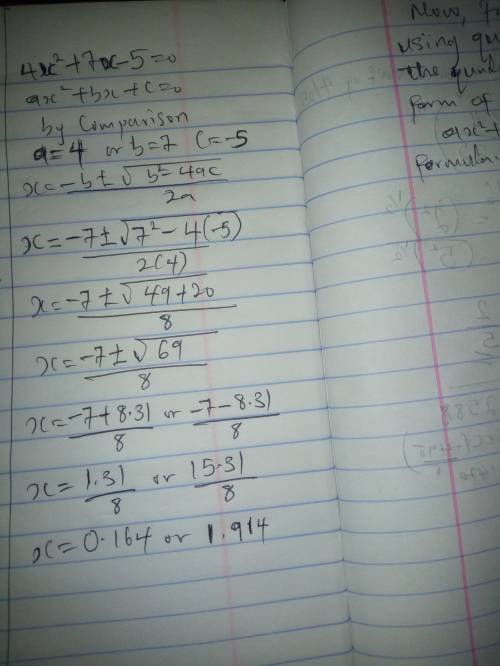 4x²+7x-5=0
ax²+bx+c=0
by Comparison
a=4 or b=7 C=-5
x=-b±√b²-4ac/2a
x=-7±√7²-4(-5)/2(4)
x=-7±√49+20/8
x=-7±√69/8
x=-7+8.31/8 or -7-8.31/8
x=1.31/8 or 15.31/8
x=0.164 or 1.914
Now,
using
the
form of
ax²+
formula